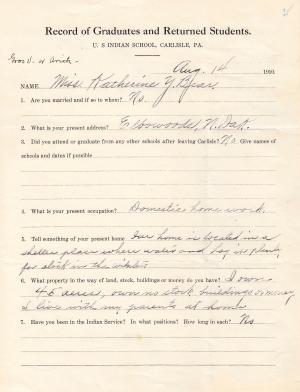 Record of Graduates and Returned Students.
U. S INDIAN SCHOOL, CARLISLE, PA.
Gros V. & Arick-
Aug. 14 1910.
NAME Miss Katherine Y. Bear
1. Are you married and if so to whom? No.
2. What is your present address? Elbowoods, N. Dak.
3. Did you attend or graduate from any other schools after leaving Carlisle? No Give names of
schools and dates if possible
4. What is your present occupation? Domestic home work.
5. Tell something of your present home Our home is located in a
shelter place where water and hay is plenty
for stock in the winter
6. What property in the way of land, stock, buildings or money do you have? I own
45 acres, own no stock buildings or money
I live with my parents at home
7. Have you been in the Indian Service? In what positions? How long in each? No